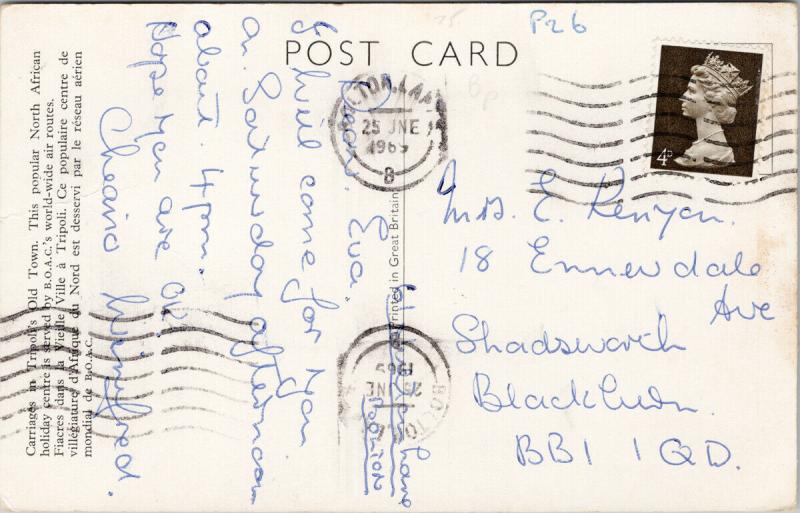 POST CARD
P26
Carriages in Tripoli's Old Town. This popular North African
holiday centre is served by B.O.A.C.'s world-wide air routes.
Fiacres dans la Vieille Ville à Tripoli. Ce populaire centre de
villégiature d'Afrique du Nord est desservi par le réseau aérien
mondial de B.O.A.C.
Printed in Great Britain
BOLTON. LANCS
25 JNE
1969
B
4D
Bolton
Dear Eva.
I will come for you
on Saturday afternoon
about 4pm.
Hope you are OK.
Cheerio Winifred.
Mrs. E. Kenyon.
18 Ennerdale
Ave
Shadsworth
Blackburn.
BB1 1QD.
BOLTON
25 JNE
1969